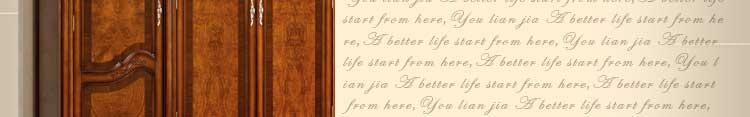 You lian jia A better life start from here, A better life
start from here, You lian jia A better life start from he
re, A better life start from here, You lian jia A better
life start from here, A better life start from here, You l
ian jia A better life start from here, A better life start
from here, You lian jia A better life start from here,